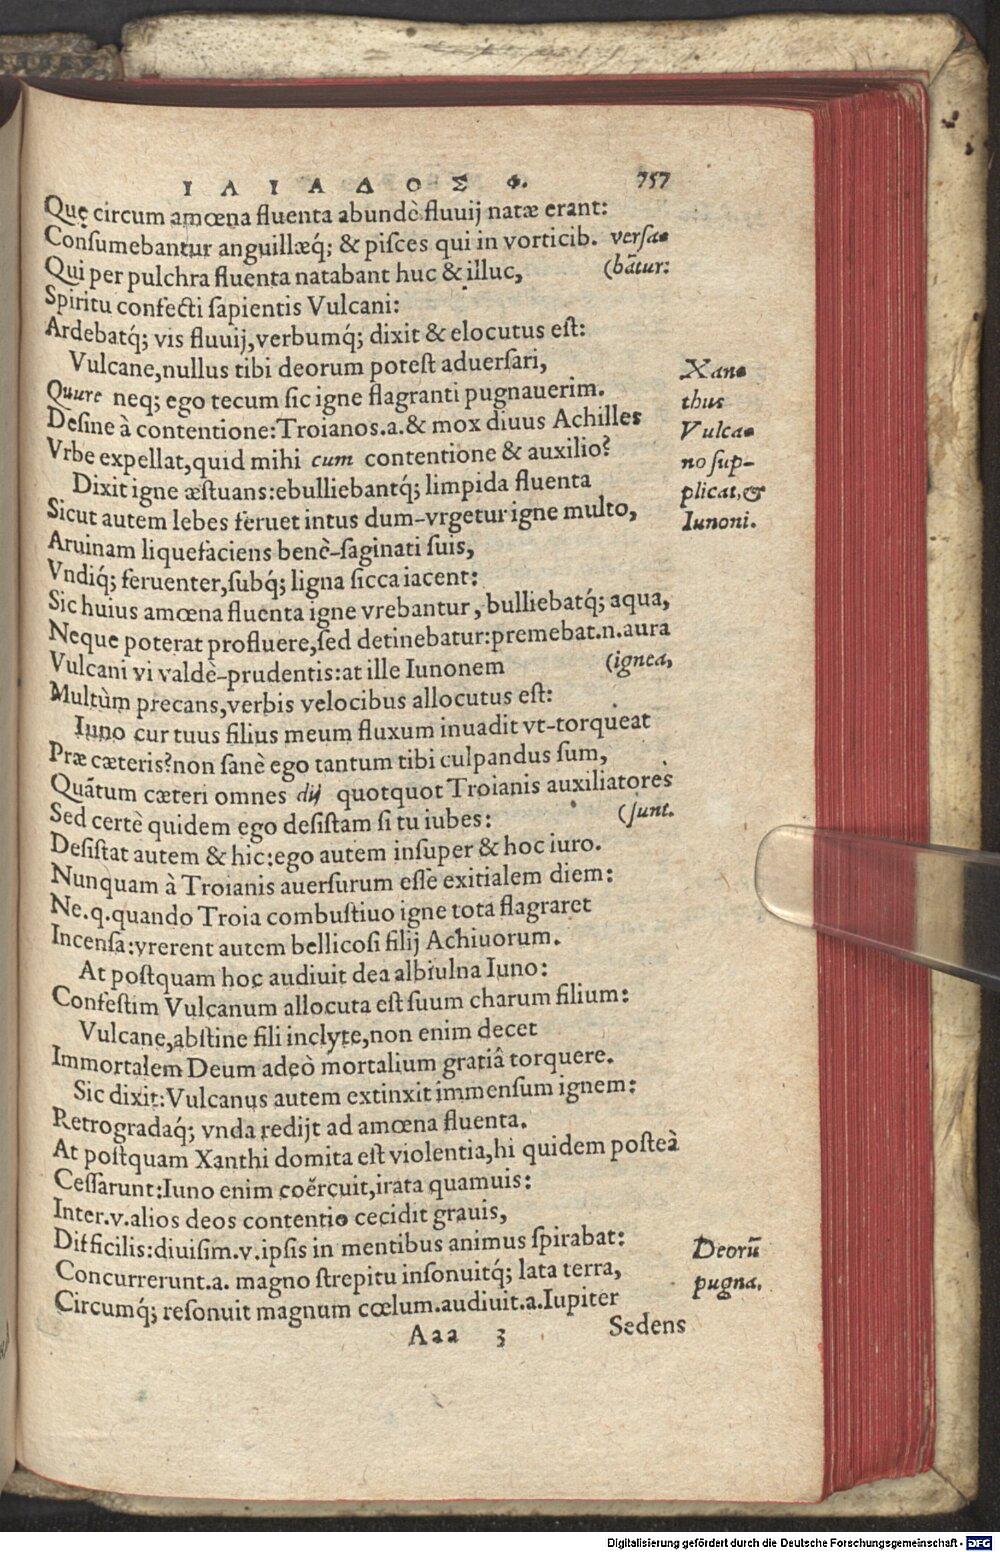 ΙΛΙΑΔΟΣ Φ. 757
Quę circum amœna fluenta abundè fluuij natæ erant:
Consumebantur anguillæq́; & pisces qui in vorticib. versa-
Qui per pulchra fluenta natabant huc & illuc, (bãtur:
Spiritu confecti sapientis Vulcani:
Ardebatq́; vis fluuij, verbumq́; dixit & elocutus est:
Vulcane, nullus tibi deorum potest aduersari,
Quure neq; ego tecum sic igne flagranti pugnauerim.
Desine à contentione: Troianos.a.& mox diuus Achilles
Vrbe expellat, quid mihi cum contentione & auxilio?
Dixit igne æstuans: ebulliebantq́; limpida fluenta
Sicut autem lebes feruet intus dum-vrgetur igne multo,
Aruinam liquefaciens benè-saginati suis,
Vndiq́; feruenter, subq́; ligna sicca iacent:
Sic huius amœna fluenta igne vrebantur, bulliebatq́; aqua,
Neque poterat profluere, sed detinebatur: premebat.n.aura
Vulcani vi valdè-prudentis: at ille Iunonem (ignea,
Multùm precans, verbis velocibus allocutus est:
Iuno cur tuus filius meum fluxum inuadit vt-torqueat
Præ cæteris? non sanè ego tantum tibi culpandus sum,
Quãtum cæteri omnes dij quotquot Troianis auxiliatores
Sed certè quidem ego desistam si tu iubes: (sunt.
Desistat autem & hic: ego autem insuper & hoc iuro.
Nunquam à Troianis auersurum esse exitialem diem:
Ne.q.quando Troia combustiuo igne tota flagraret
Incensa: vrerent autem bellicosi filij Achiuorum.
At postquam hoc audiuit dea albiulna Iuno:
Confestim Vulcanum allocuta est suum charum filium:
Vulcane, abstine fili inclyte, non enim decet
Immortalem Deum adeò mortalium gratiâ torquere.
Sic dixit: Vulcanus autem extinxit immensum ignem:
Retrogradaq́; vnda redijt ad amœna fluenta.
At postquam Xanthi domita est violentia, hi quidem posteà
Cessarunt: Iuno enim coërcuit, irata quamuis:
Inter.v.alios deos contentio cecidit grauis,
Difficilis: diuisim.v.ipsis in mentibus animus spirabat:
Concurrerunt.a. magno strepitu insonuitq́; lata terra,
Circumq́; resonuit magnum cœlum. audiuit.a.Iupiter
Aaa 3 Sedens
Xan-
thus
Vulca-
no sup-
plicat, &
Iunoni.
Deorũ
pugna.
Digitalisierung gefördert durch die Deutsche Forschungsgemeinschaft - DFG